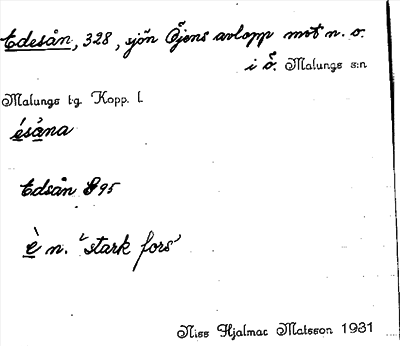 Edesån, 328, sjön Öjens avlopp mot n. o.
i Ö. Malungs s:n
Malungs tg. Kopp. l.
ésåna
Edsån 95
è n. 'stark fors'
Nils Hjalmar Matsson 1931